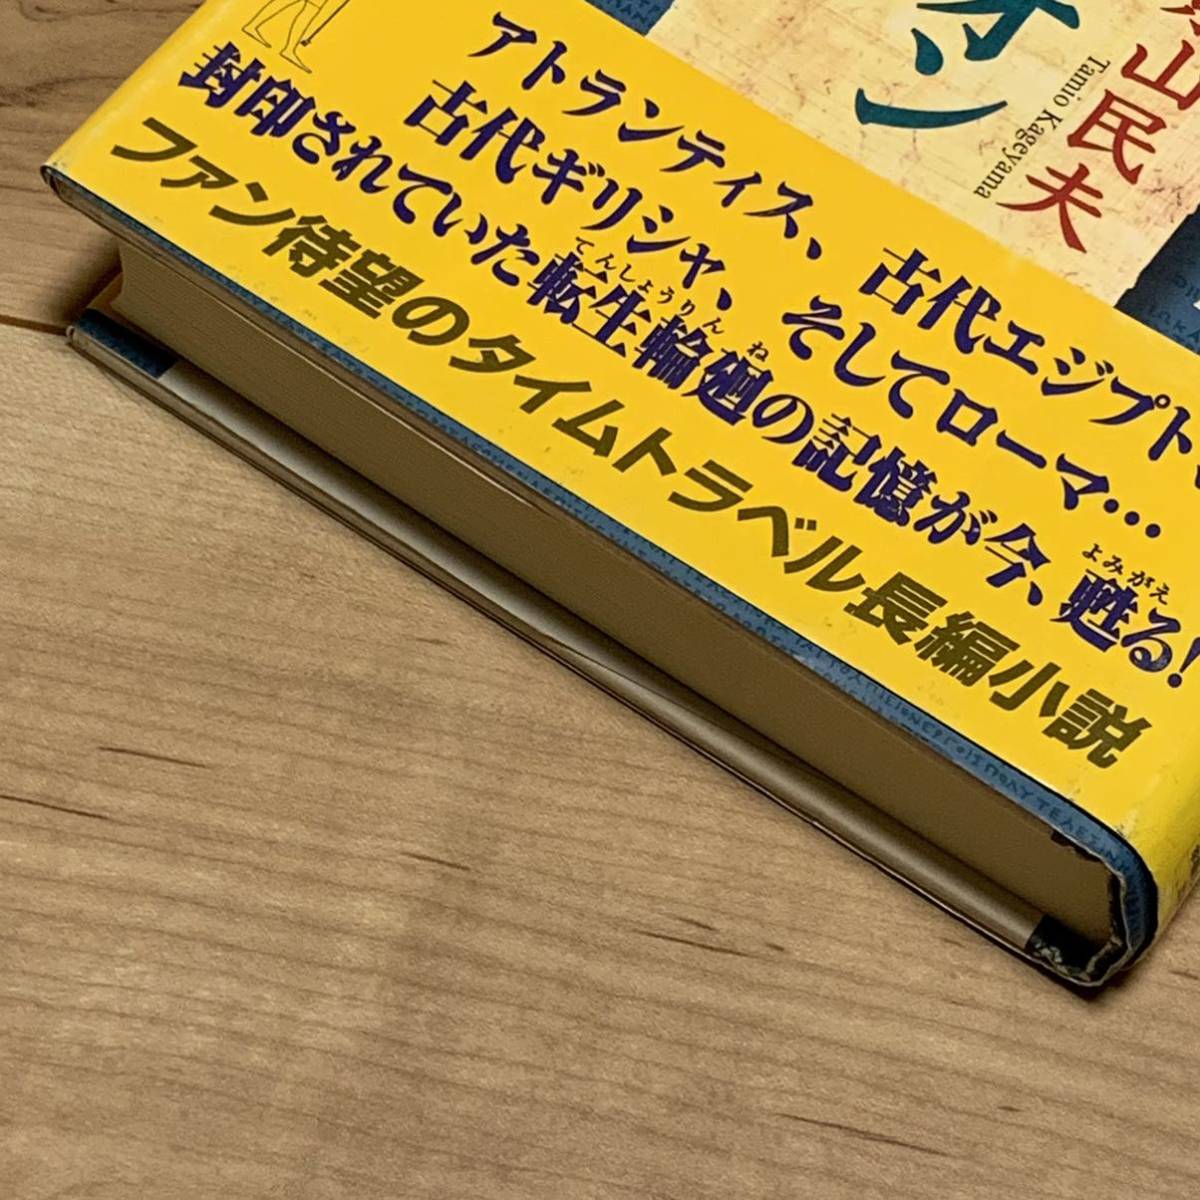 オン
山民夫
Tamio Kageyama
アトランティス、古代エジプト、
古代ギリシャ、そしてローマ…
封印されていた転生輪廻の記憶が今、甦る!
てんしょうりんね
よみがえ
ファン待望のタイムトラベル長編小説